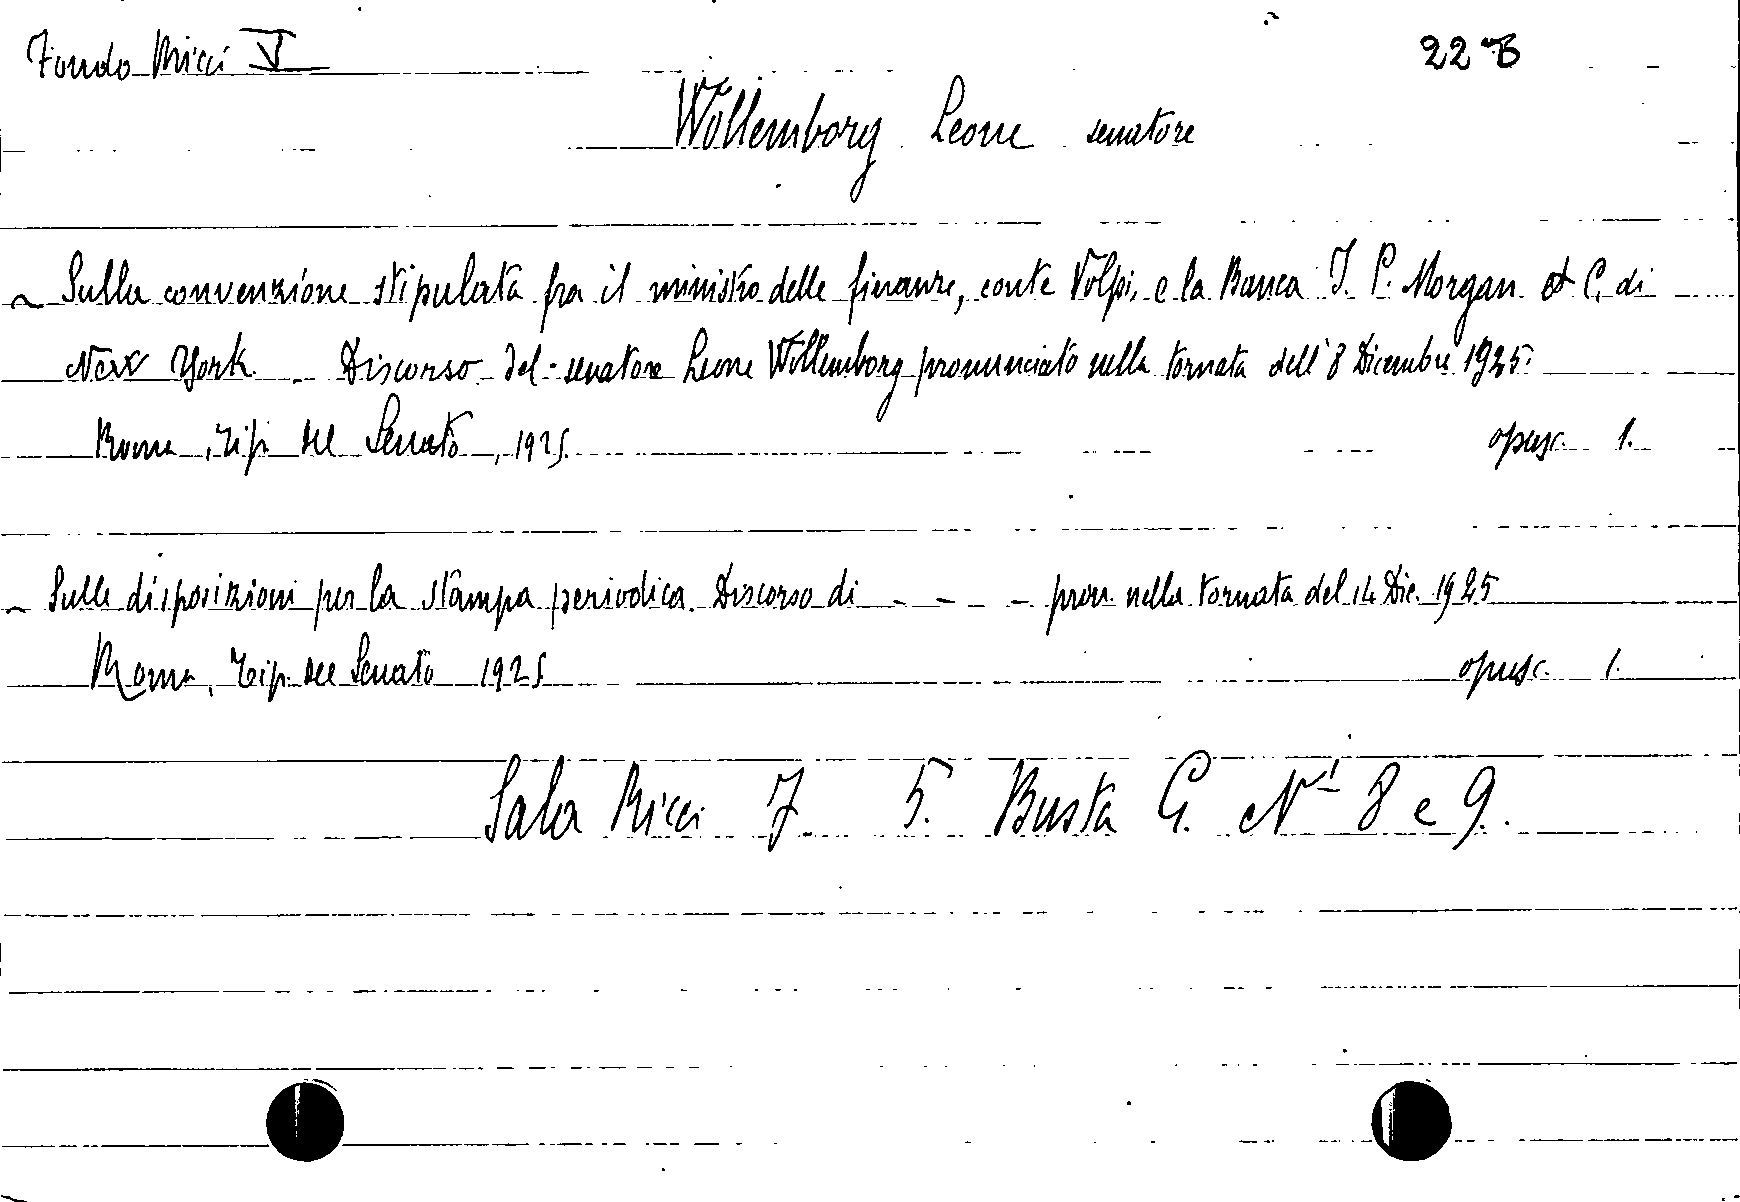 Fondo Ricci V
22 B
Wollemborg Leone senatore
~ Sulla convenzione stipulata fra il ministro delle finanze, conte Volpi, e la Banca J. P. Morgan & C. di
New York. Discorso del senatore Leone Wollemborg pronunciato nella tornata dell'8 Dicembre 1925.
Roma, Tip. del Senato, 1925. opusc. 1.
~ Sulle disposizioni per la stampa periodica. Discorso di - - - - pron. nella tornata del 14 Dic. 1925
Roma, Tip. del Senato 1925 opusc. 1.
Sala Ricci 7 5. Busta G. Nⁱ 8 e 9.